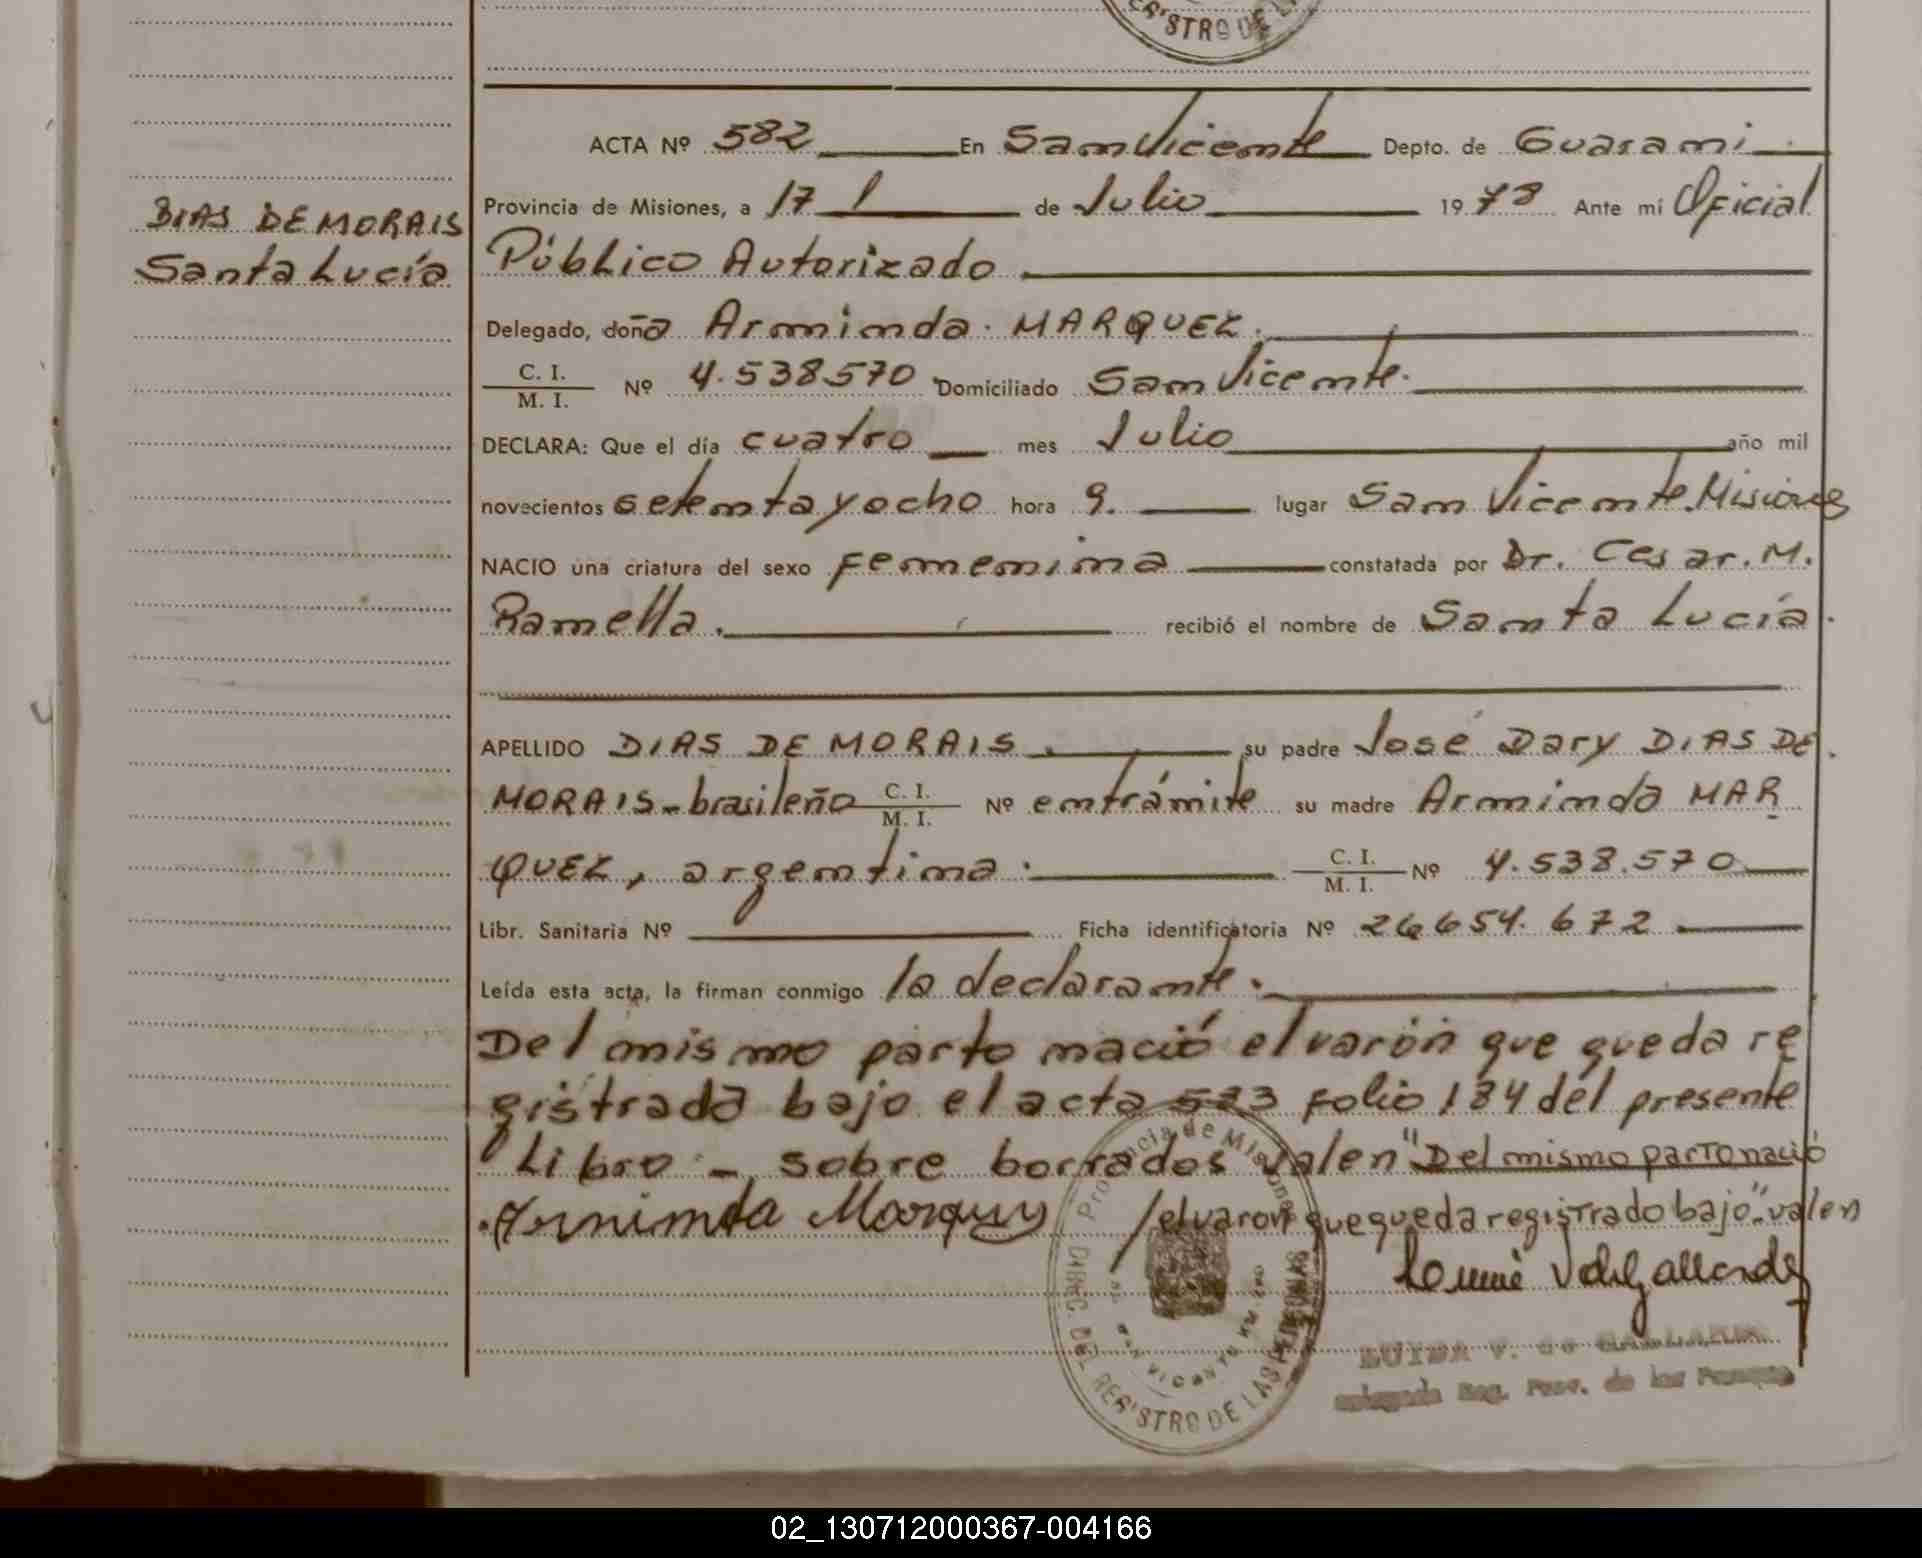 REG'STRO DE L
ACTA Nº 582 En San Vicente Depto. de Guarami
Provincia de Misiones, a 17 de Julio 1978 Ante mí Oficial
BIAS DE MORAIS
Santa Lucía
Público Autorizado
Delegado, doña Arminda. MARQUEZ.
C. I. / M. I. Nº 4.538570 Domiciliado San Vicente.
DECLARA: Que el día cuatro mes Julio año mil
novecientos setenta y ocho hora 9. lugar San Vicente. Misiones
NACIO una criatura del sexo femenina constatada por Dr. Cesar. M.
Ramella. recibió el nombre de Santa Lucía.
APELLIDO DIAS DE MORAIS su padre José Dary DIAS DE
MORAIS - brasileño C. I. / M. I. Nº en trámite su madre Arminda MAR
QUEZ, argentina. C. I. / M. I. Nº 4.538.570
Libr. Sanitaria Nº Ficha identificatoria Nº 26654.672
Leída esta acta, la firman conmigo la declarante.
Del mismo parto nació el varón que queda re
gistrada bajo el acta 583 folio 184 del presente
Libro - sobre borrados valen "Del mismo parto nació
/el varon que queda registrado bajo". valen
Arminda Marquez
Provincia de Misiones
DIREC. DEL REG'STRO DE LAS PERSONAS
SAN VICENTE
02_130712000367-004166